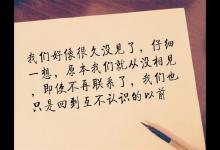 我们好像很久没见了，仔细
一想，原本我们就从没相见
，即使不再联系了，我们也
只是回到互不认识的以前